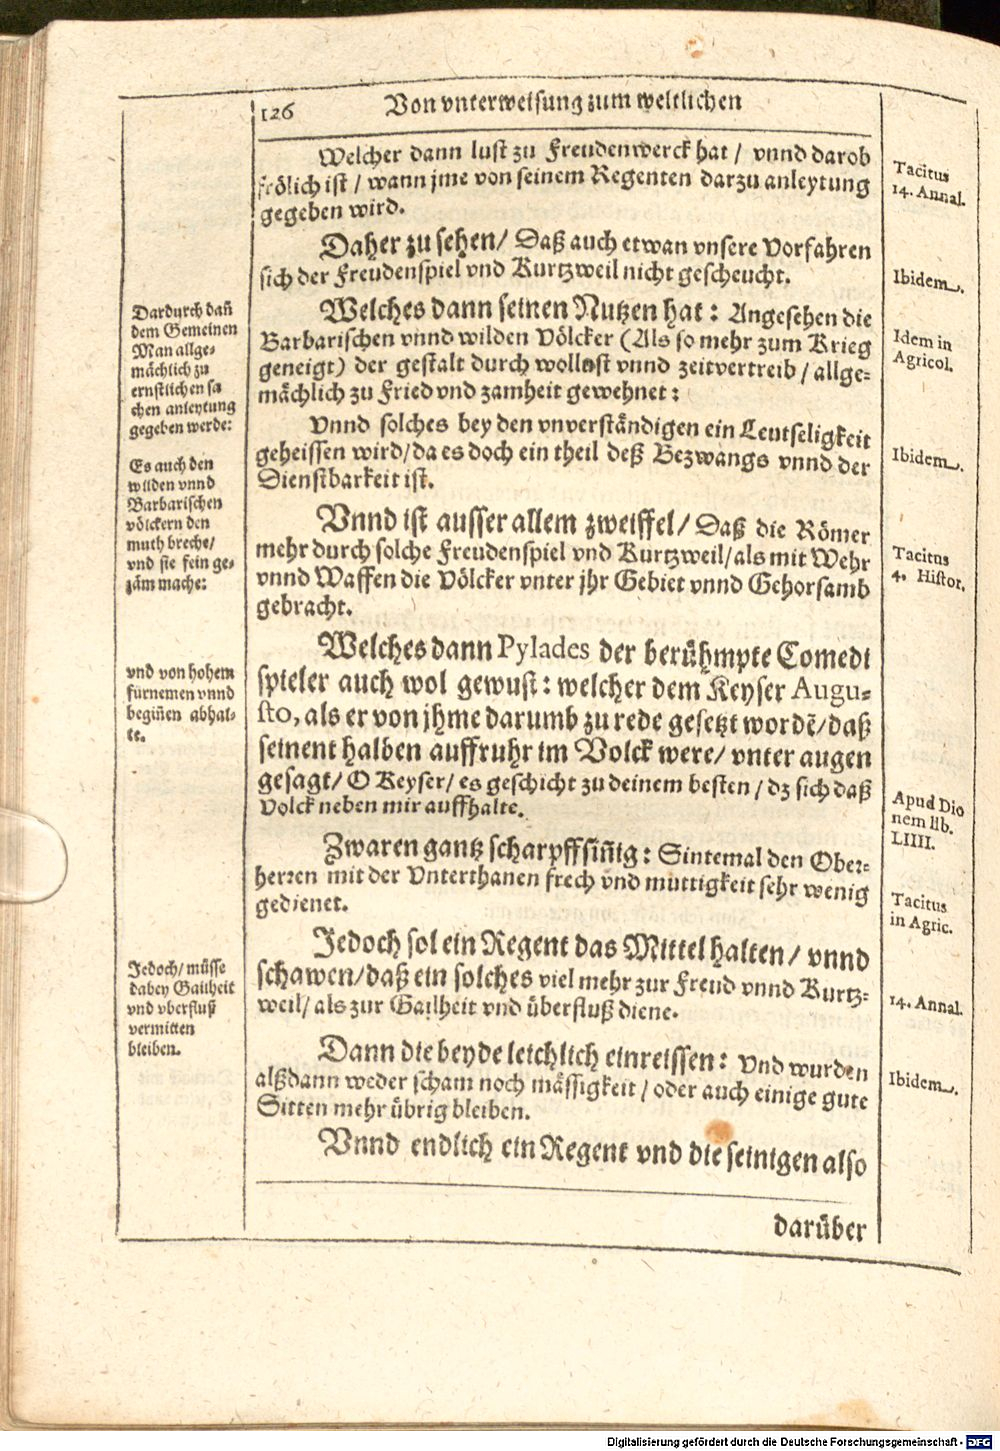 126
Von vnterweisung zum weltlichen
Welcher dann lust zu Freudenwerck hat / vnnd darob
frölich ist / wann jme von seinem Regenten darzu anleytung
gegeben wird.
Tacitus
14. Annal.
Daher zu sehen / Daß auch etwan vnsere Vorfahren
sich der Freudenspiel vnd Kurtzweil nicht gescheucht.
Ibidem.
Welches dann seinen Nutzen hat: Angesehen die
Barbarischen vnnd wilden Völcker (Als so mehr zum Krieg
geneigt) der gestalt durch wollust vnnd zeitvertreib / allge-
mächlich zu Fried vnd zamheit gewehnet:
Idem in
Agricol.
Dardurch dañ
dem Gemeinen
Man allge-
mächlich zu
ernstlichen sa
chen anleytung
gegeben werde:
Vnnd solches bey den vnverständigen ein Leutseligkeit
geheissen wird/da es doch ein theil deß Bezwangs vnnd der
Dienstbarkeit ist.
Ibidem.
Es auch den
wilden vnnd
Barbarischen
völckern den
muth breche/
vnd sie fein ge-
zäm mache:
Vnnd ist ausser allem zweiffel/ Daß die Römer
mehr durch solche Freudenspiel vnd Kurtzweil/als mit Wehr
vnnd Waffen die Völcker vnter jhr Gebiet vnnd Gehorsamb
gebracht.
Tacitus
4. Histor.
Welches dann Pylades der berühmpte Comedi
spieler auch wol gewust: welcher dem Keyser Augu-
sto, als er von jhme darumb zu rede gesetzt wordẽ/daß
seinent halben auffruhr im Volck were/ vnter augen
gesagt/ O Keyser/ es geschicht zu deinem besten / dz sich daß
Volck neben mir auffhalte.
vnd von hohem
furnemen vnnd
begiñen abhal-
te.
Apud Dio
nem lib.
LIIII.
Zwaren gantz scharpffsiñig: Sintemal den Ober-
herren mit der Vnterthanen frech vnd muttigkeit sehr wenig
gedienet.
Tacitus
in Agric.
Jedoch sol ein Regent das Mittel halten / vnnd
schawen/daß ein solches viel mehr zur Freud vnnd Kurtz-
weil/ als zur Gailheit vnd überfluß diene.
Jedoch/ müsse
dabey Gailheit
vnd vberfluß
vermitten
bleiben.
14. Annal.
Dann die beyde leichlich einreissen: Vnd wurden
alßdann weder scham noch mässigkeit / oder auch einige gute
Sitten mehr übrig bleiben.
Ibidem.
Vnnd endlich ein Regent vnd die seinigen also
darüber
Digitalisierung gefördert durch die Deutsche Forschungsgemeinschaft - DFG